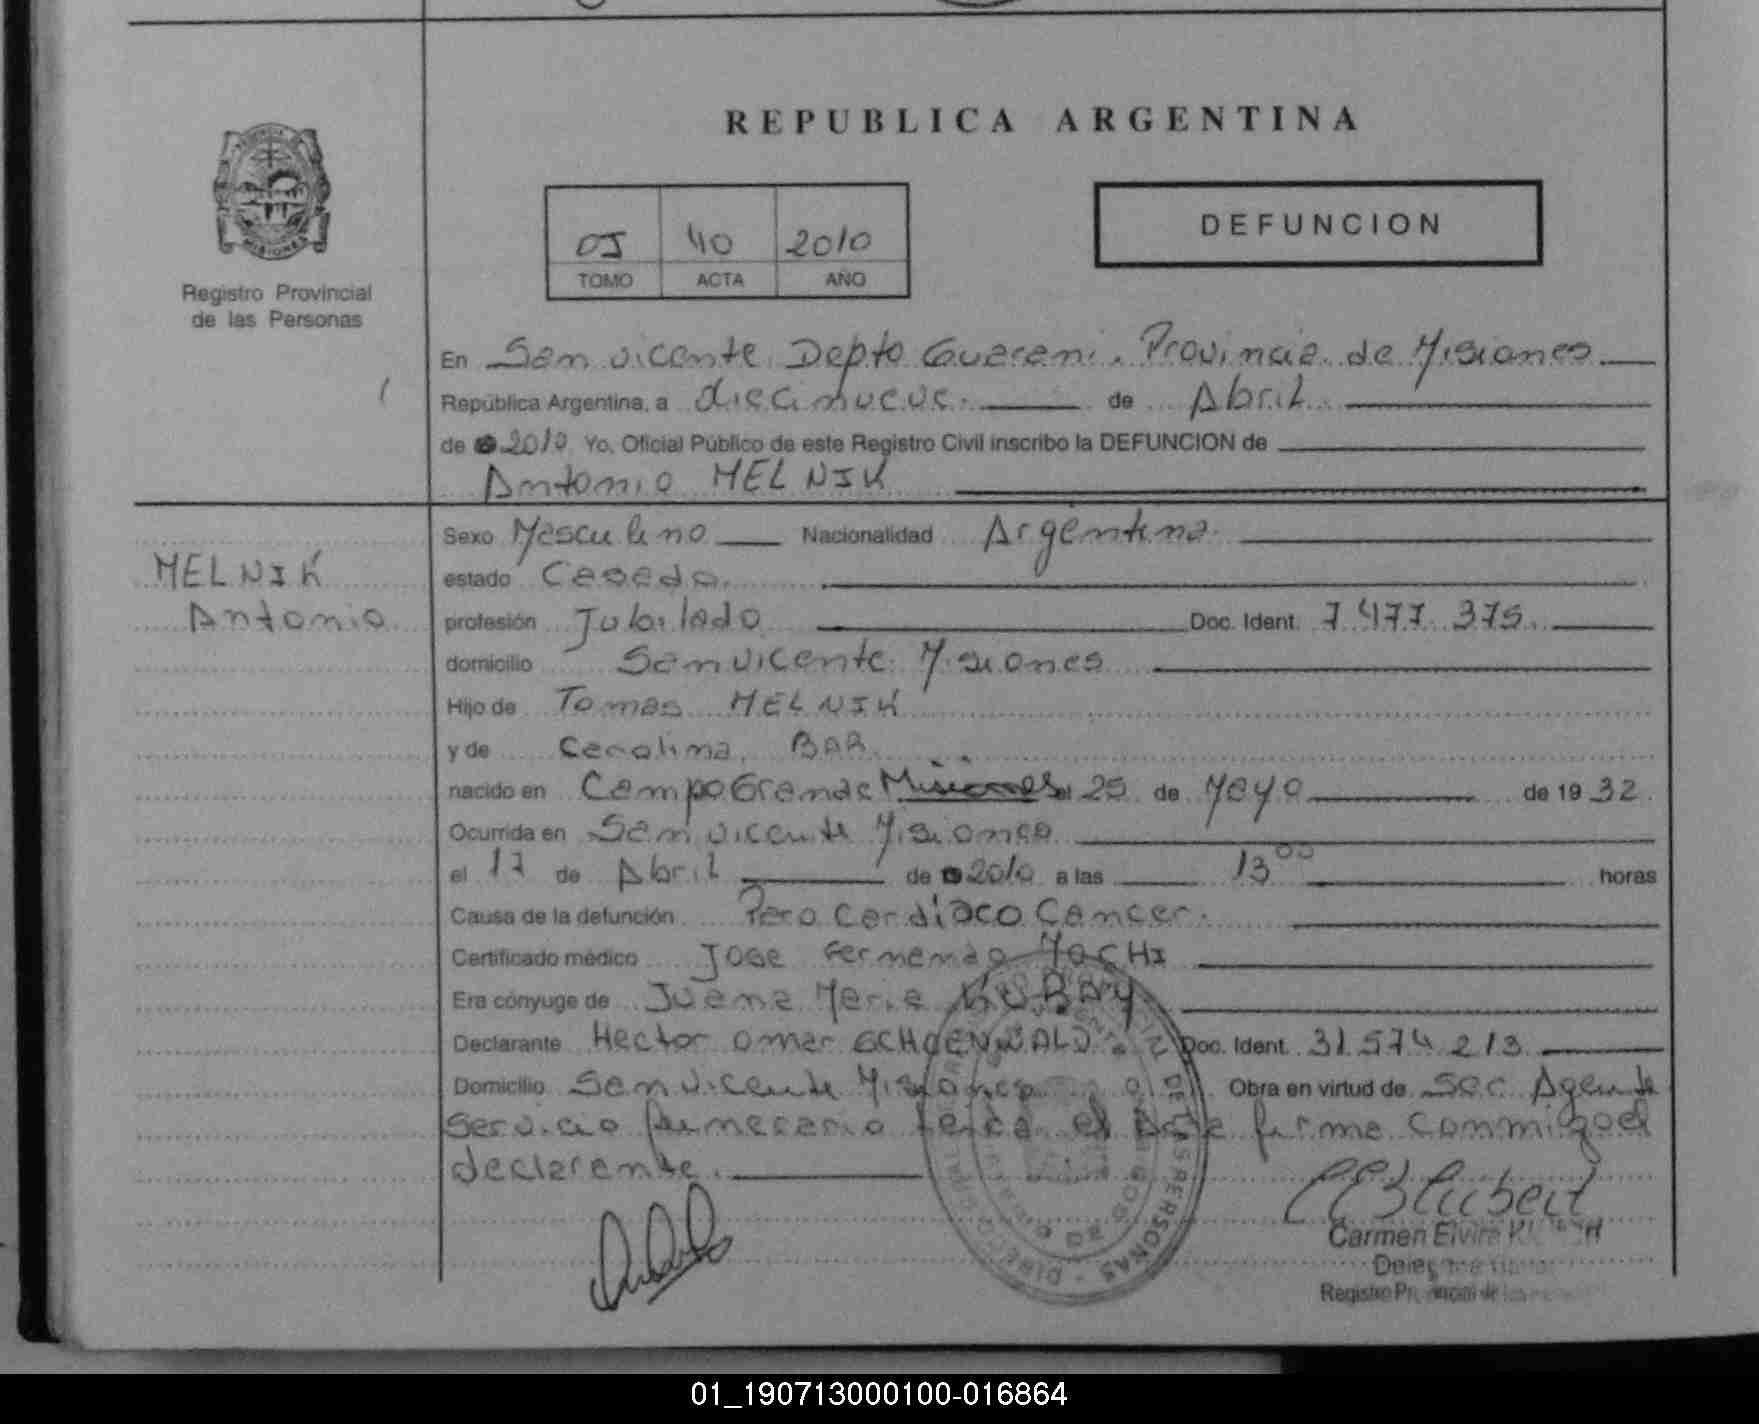 REPUBLICA ARGENTINA
PROVINCIA
MISIONES
Registro Provincial
de las Personas
OJ 40 2010
TOMO ACTA AÑO
DEFUNCION
En San Vicente Depto Guarani. Provincia de Misiones
República Argentina, a diecinueve. de Abril.
de 2010 Yo, Oficial Público de este Registro Civil inscribo la DEFUNCION de
Antonio MELNIK
MELNIK
Antonio
Sexo Masculino Nacionalidad Argentina.
estado Casado.
profesión Jubilado Doc. Ident. 7.477.375.
domicilio San Vicente Misiones
Hijo de Tomas MELNIK
y de Carolina BAR
nacido en Campo Grande Misiones el 25 de Mayo de 19 32
Ocurrida en San Vicente Misiones
el 17 de Abril de 2010 a las 13 00 horas
Causa de la defunción Paro Cardiaco Cancer.
Certificado médico Jose Fernando MOCHI
Era cónyuge de Juana Maria KUBAY
Declarante Hector Omar SCHOENWALD Doc. Ident. 31.574.213
Domicilio San Vicente Misiones Obra en virtud de Ser Agente
Servicio funerario leida el acta firma conmigo el
declarante.
Carmen Elvira
Registro
01_190713000100-016864